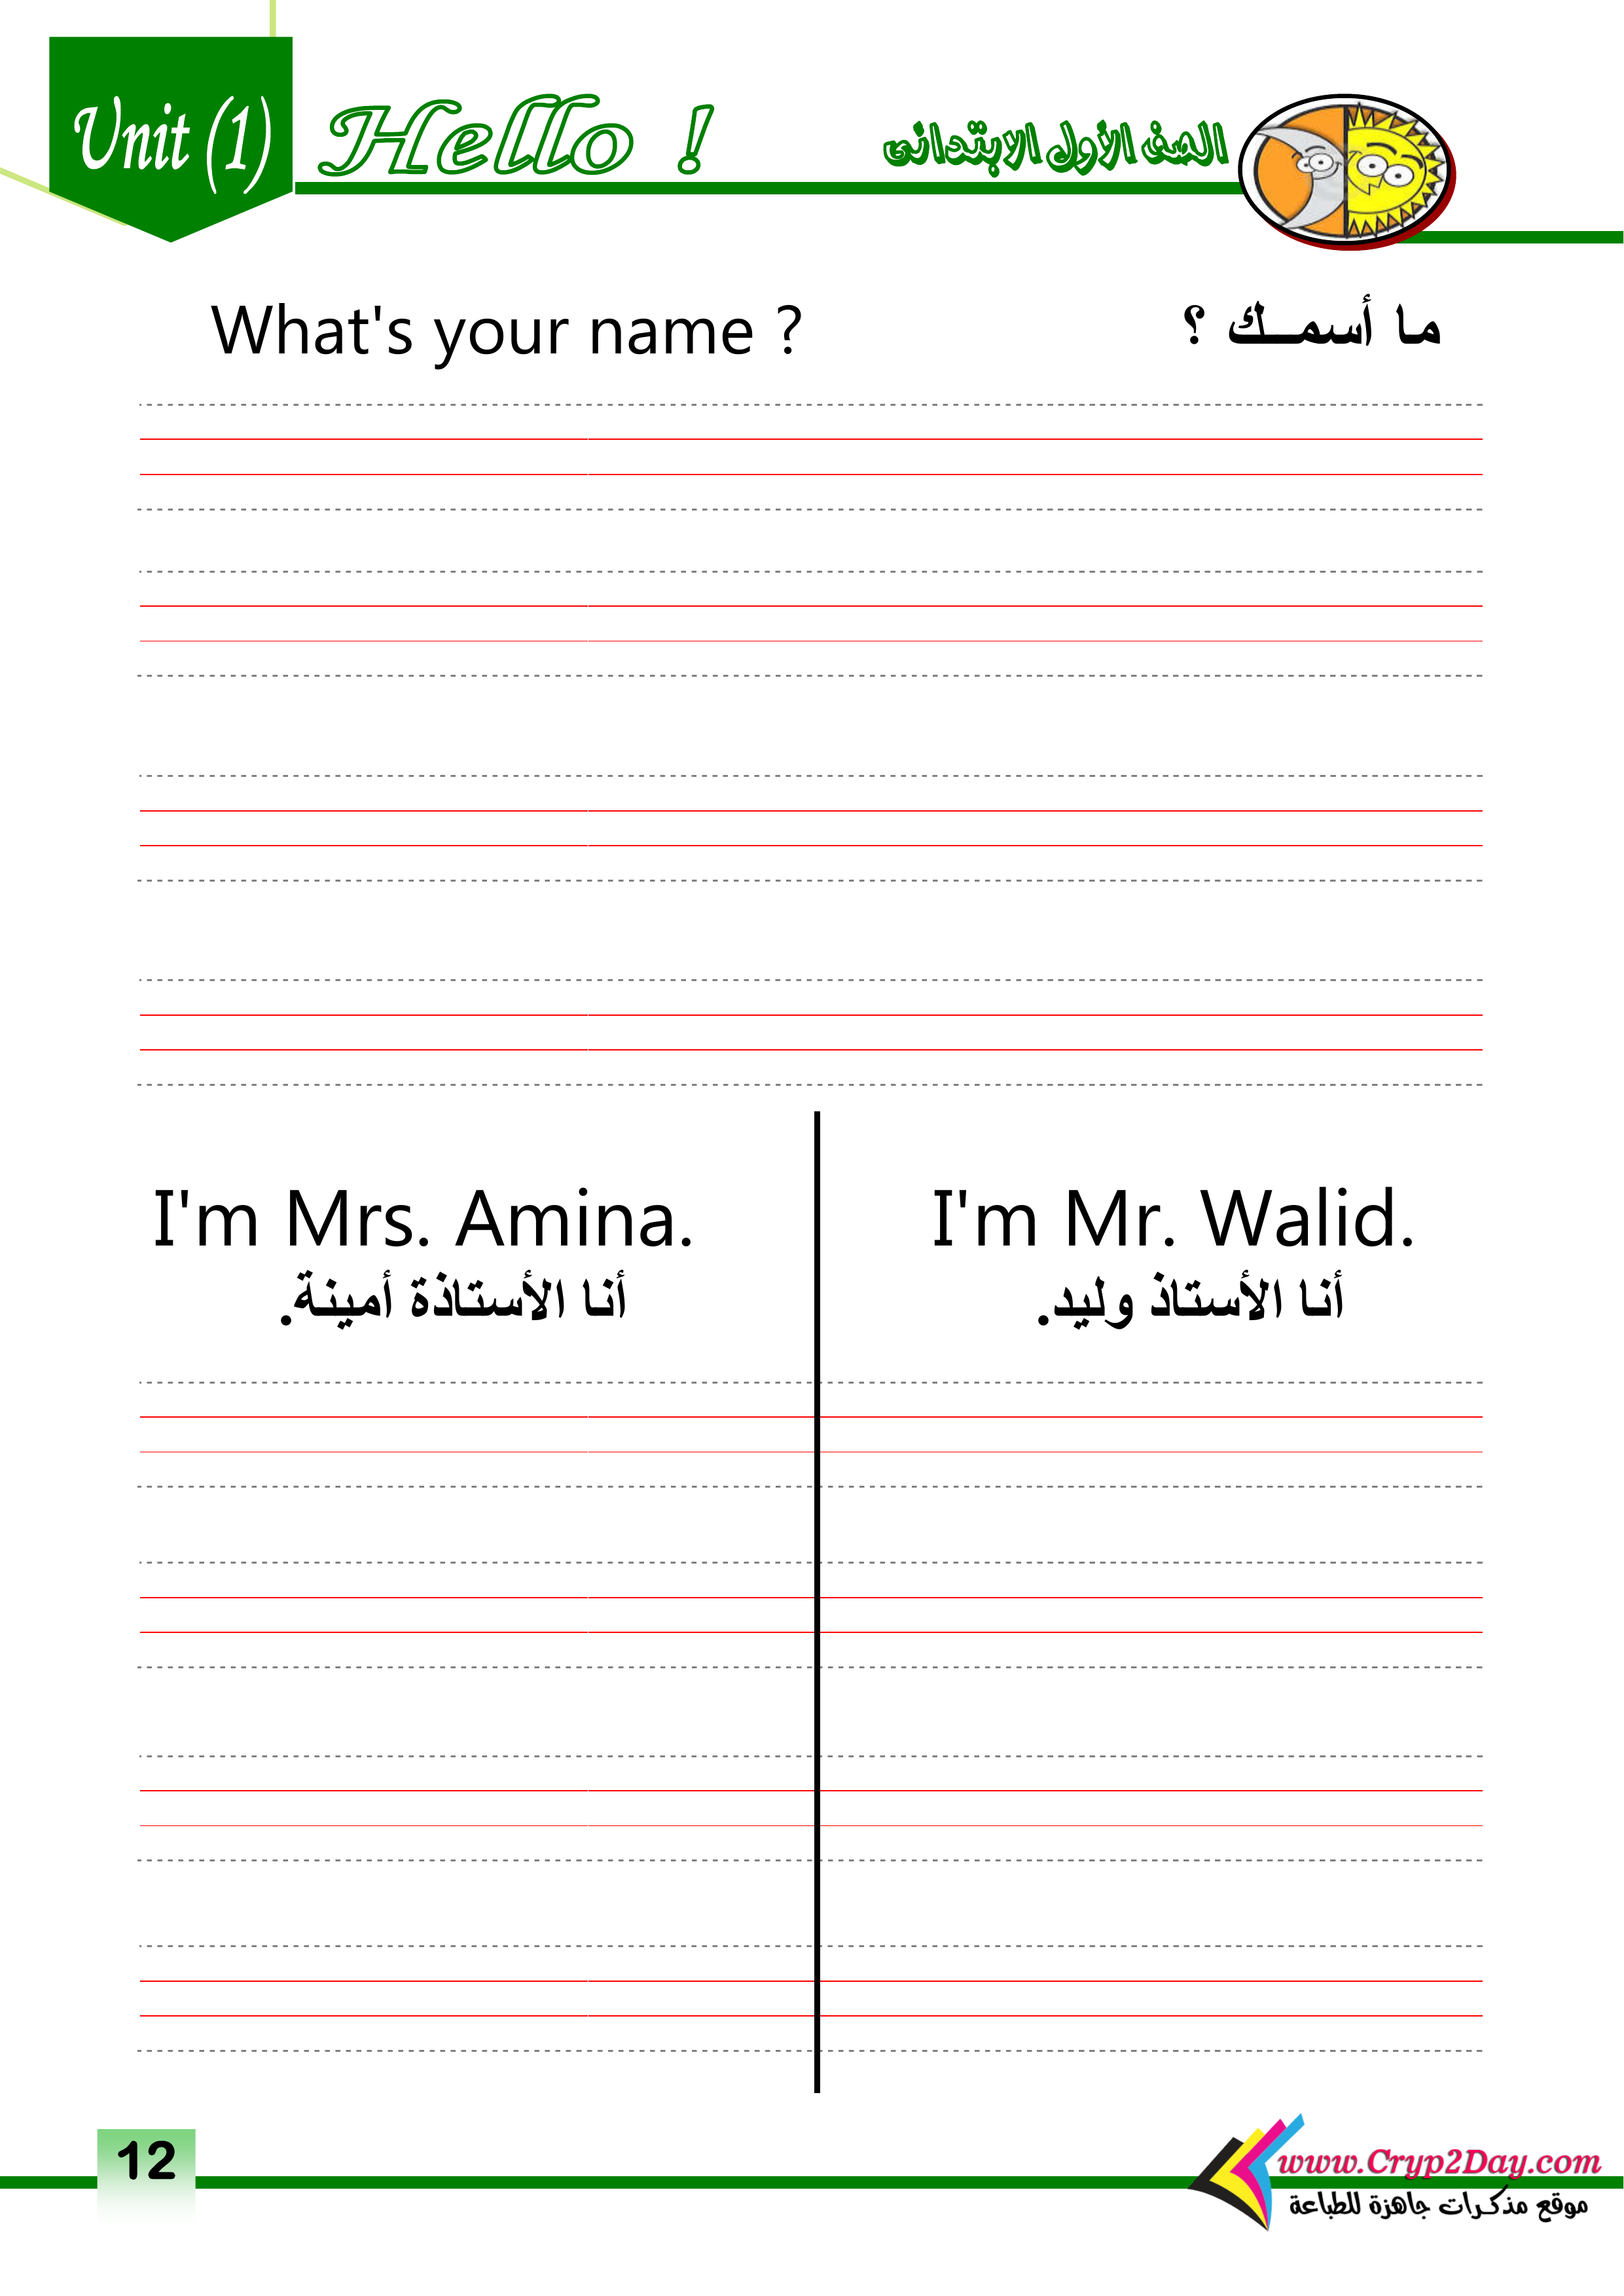 Unit (1)
Hello !
الصف الأول الابتدائى
What's your name ?
ما أسمـــك ؟
I'm Mrs. Amina.
أنا الأستاذة أمينة.
I'm Mr. Walid.
أنا الأستاذ وليد.
12
www.Cryp2Day.com
موقع مذكرات جاهزة للطباعة